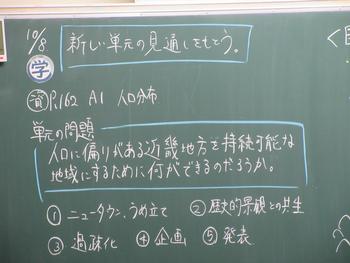 10/8
新しい単元の見通しをもとう。
学
資 P.162 A1 人口分布
単元の問題
人口に偏りがある近畿地方を持続可能な
地域にするために何ができるのだろうか。
① ニュータウン、うめ立て ② 歴史的景観との共生
③ 過疎化 ④ 企画 ⑤ 発表